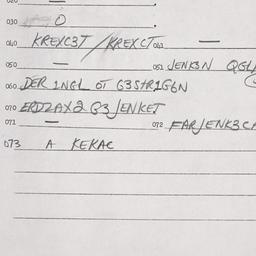 030 O
040 KREXC3T / KREXCT 041 —
050 — 051 JENK3N
060 DER 1NGL OT G3STR1G6N
070 ERDZAX2 G3JENKET
071 — 072 FARJENK3CA
073 A KEKAC